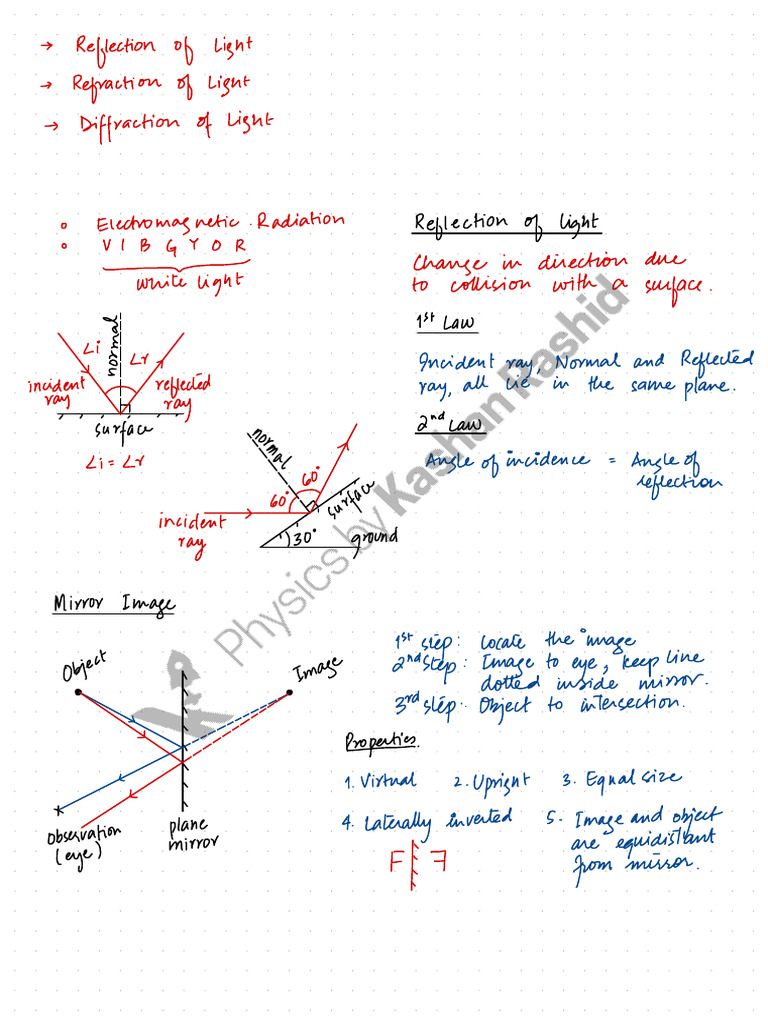 → Reflection of Light
→ Refraction of Light
→ Diffraction of Light
∘ Electromagnetic Radiation
∘ V I B G Y O R
white light
∠i
normal
∠r
incident
ray
reflected
ray
surface
∠i = ∠r
normal
60°
60°
surface
incident
ray
30°
ground
Reflection of Light
Change in direction due
to collision with a surface.
1st Law
Incident ray, Normal and Reflected
ray, all lie in the same plane.
2nd Law
Angle of incidence = Angle of
reflection
Physics by Kashan Rashid
Mirror Image
Object
Image
Observation
(eye)
plane
mirror
1st step: Locate the image
2nd step: Image to eye, keep line
dotted inside mirror.
3rd step: Object to intersection.
Properties.
1. Virtual 2. Upright 3. Equal size
4. Laterally inverted 5. Image and object
are equidistant
from mirror.
F